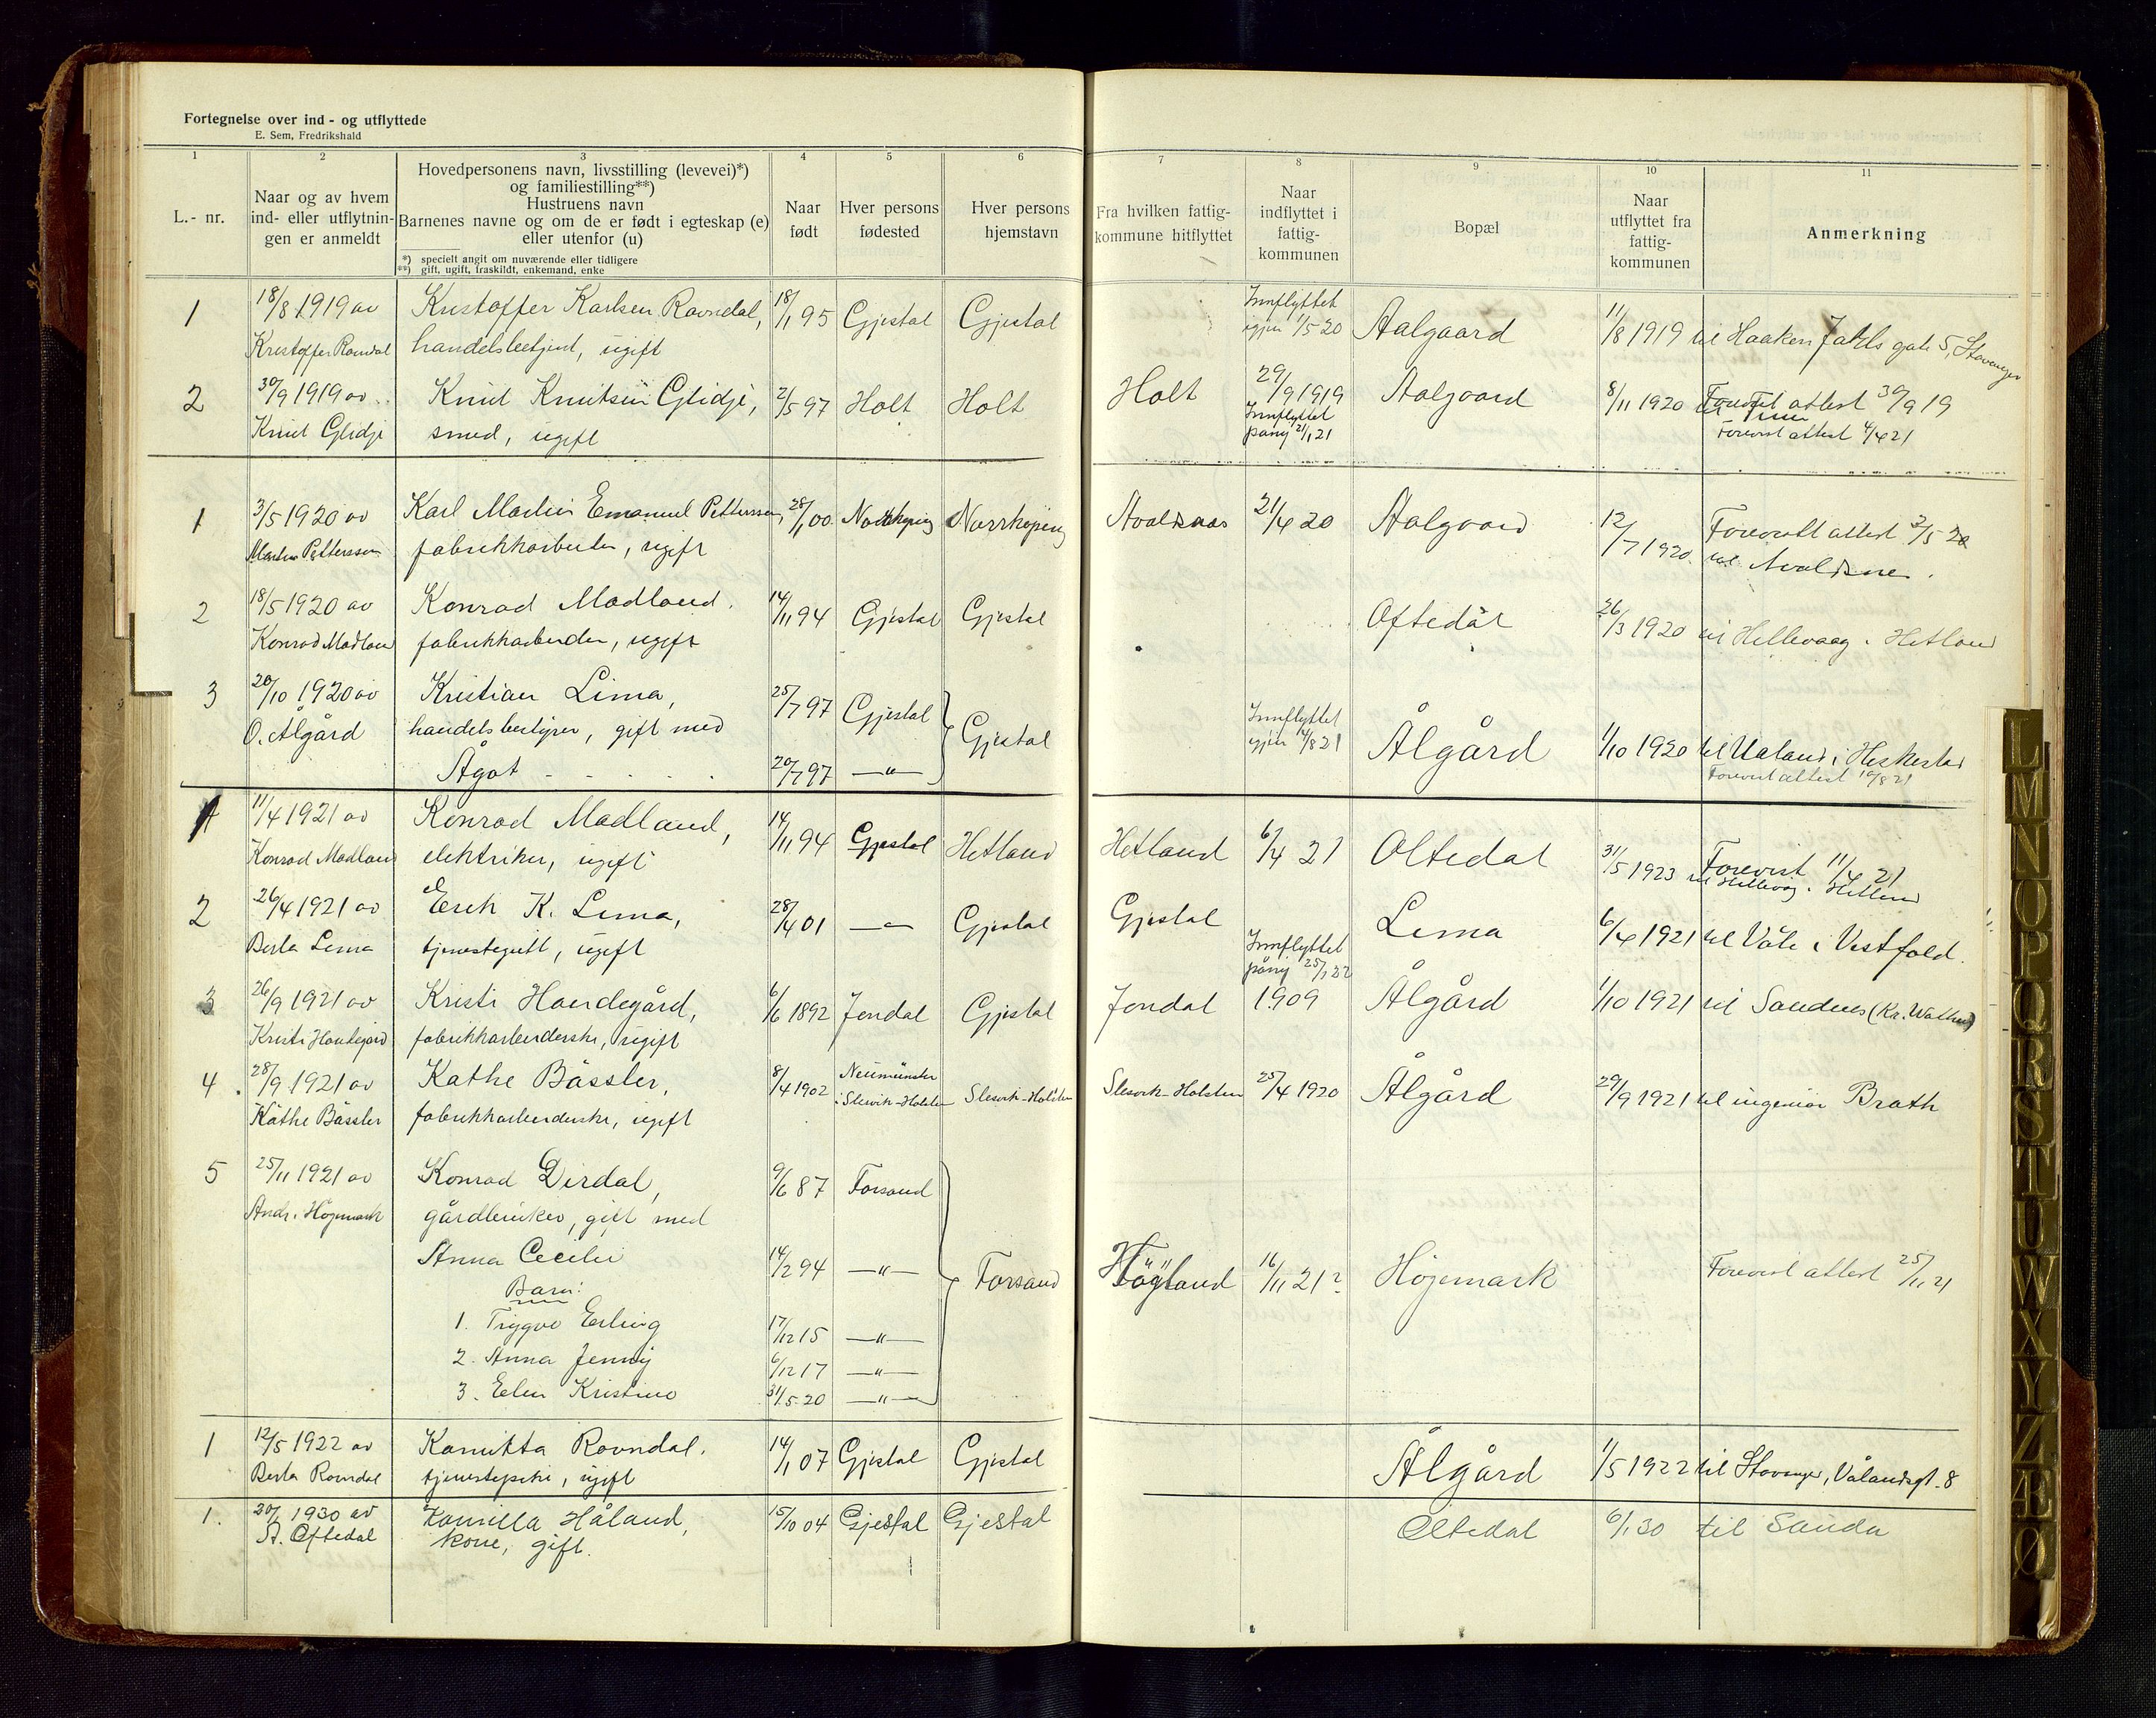 Fortegnelse over ind - og utflyttede
E. Sem, Fredrikshald
1 2 3 4 5 6 7 8 9 10 11
L.- nr.
Naar og av hvem
ind- eller utflytnin-
gen er anmeldt
Hovedpersonens navn, livsstilling (levevei)*)
og familiestilling**)
Hustruens navn
Barnenes navne og om de er født i egteskap (e)
eller utenfor (u)
*) specielt angit om nuværende eller tidligere
**) gift, ugift, fraskildt, enkemand, enke
Naar
født
Hver persons
fødested
Hver persons
hjemstavn
Fra hvilken fattig-
kommune hitflyttet
Naar
indflyttet i
fattig-
kommunen
Bopæl
Naar
utflyttet fra
fattig-
kommunen
Anmerkning
1 18/8 1919 av Kristoffer Karlsen Ravndal, 18/1 95 Gjestal Gjestal Innflyttet igjen 1/5 20 Aalgaard 11/8 1919 til Haaken Jarls gate 5, Stavanger
Kristoffer Ravndal handelsbetjent, ugift
2 30/9 1919 av Knut Knutsen Glidje, 2/5 97 Holt Holt Holt 29/9 1919 Aalgaard 8/11 1920 attest 30/9 19
Knut Glidje smed, ugift Innflyttet påny 21/1 21 Forevist attest 4/4 21
1 3/5 1920 av Karl Martin Emanuel Pettersson, 28/1 00 Norrkøping Avaldsnes 21/4 20 Aalgaard 12/7 1920 Forevist attest 3/5 20
Martin Pettersson fabrikkarbeider, ugift til Avaldsnes.
2 18/5 1920 av Konrad Madland, 14/11 94 Gjestal Gjestal Oftedal 26/3 1920 til Hillevaag i Hetland
Konrad Madland fabrikkarbeider, ugift
3 20/10 1920 av Kristian Lima, 25/7 97 Gjestal Gjestal Innflyttet igjen 1/8 21 Ålgård 1/10 1920 til Ualand i Heskestad
O. Ålgård handelsbestyrer, gift med Forevist attest 10/8 21
Ågot - - - - - 20/7 97 —"—
1 11/4 1921 av Konrad Madland, 14/11 94 Gjestal Hetland Hetland 6/4 21 Oltedal 31/5 1923 Forevist 11/4 21
Konrad Madland elektriker, ugift til Hillevåg i Hetland
2 26/4 1921 av Erik K. Lima, 28/4 01 —"— Gjestal Gjestal Lima 6/4 1921 til Våle i Vestfold.
Berta Lima tjenestegutt, ugift Innflyttet påny 25/1 22
3 26/9 1921 av Kristi Handegård, 6/6 1892 Jondal Gjestal Jondal 1909 Ålgård 1/10 1921 til Sandnes
Kristi Handegård fabrikkarbeiderske, ugift
4 28/9 1921 av Käthe Bässler, 8/4 1902 Neumünster i Slesvik-Holsten Slesvik-Holsten Slesvik-Holsten 25/4 1920 Ålgård 29/9 1921 til ingeniør Brath
Käthe Bässler fabrikkarbeiderske, ugift
5 25/11 1921 av Konrad Dirdal, 9/6 87 Forsand
Andr. Høgemark gårdbruker, gift med
Anna Cecilie 14/2 94 —"— Forsand Högland 16/11 21? Høgemark Forevist attest 25/11 21
Barn:
1. Trygve Erling 17/12 15 —"—
2. Anna Jenny 6/12 17 —"—
3. Elen Kristine 31/5 20 —"—
1 12/5 1922 av Ravndal, 14/1 07 Gjestal Gjestal Ålgård 1/5 1922 til Stavanger, Vålandsgt. 8
Berta Ravndal tjenestepike, ugift
1. 1930 av Kamilla Håland, 15/10 04 Gjestal Gjestal Oltedal 6/1 30 til Sauda
A. Oftedal kone, gift.
L
M
N
O
P
Q
R
S
T
U
W
X
Y
Z
Æ
Ø